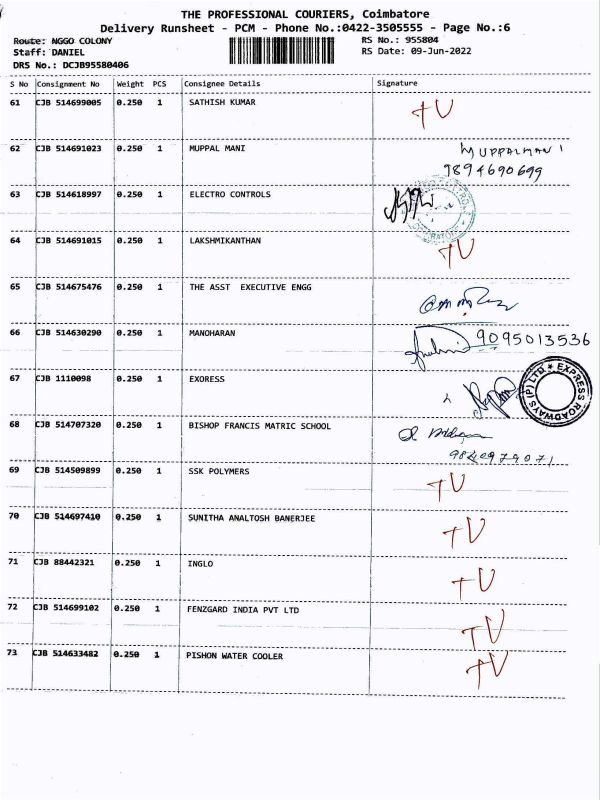 THE PROFESSIONAL COURIERS, Coimbatore
Delivery Runsheet - PCM - Phone No.:0422-3505555 - Page No.:6
Route: NGGO COLONY RS No.: 955804
Staff: DANIEL RS Date: 09-Jun-2022
DRS No.: DCJB95580406
S No Consignment No Weight PCS Consignee Details Signature
61 CJB 514699005 0.250 1 SATHISH KUMAR TU
62 CJB 514691023 0.250 1 MUPPAL MANI MUPPALMANI
9894690699
63 CJB 514618997 0.250 1 ELECTRO CONTROLS
64 CJB 514691015 0.250 1 LAKSHMIKANTHAN TU
65 CJB 514675476 0.250 1 THE ASST EXECUTIVE ENGG
66 CJB 514630290 0.250 1 MANOHARAN 9095013536
67 CJB 1110098 0.250 1 EXORESS EXPRESS ROADWAYS (P) LTD
68 CJB 514707320 0.250 1 BISHOP FRANCIS MATRIC SCHOOL
9840979071
69 CJB 514509899 0.250 1 SSK POLYMERS TU
70 CJB 514697410 0.250 1 SUNITHA ANALTOSH BANERJEE TU
71 CJB 88442321 0.250 1 INGLO TU
72 CJB 514699102 0.250 1 FENZGARD INDIA PVT LTD TU
73 CJB 514633482 0.250 1 PISHON WATER COOLER TU